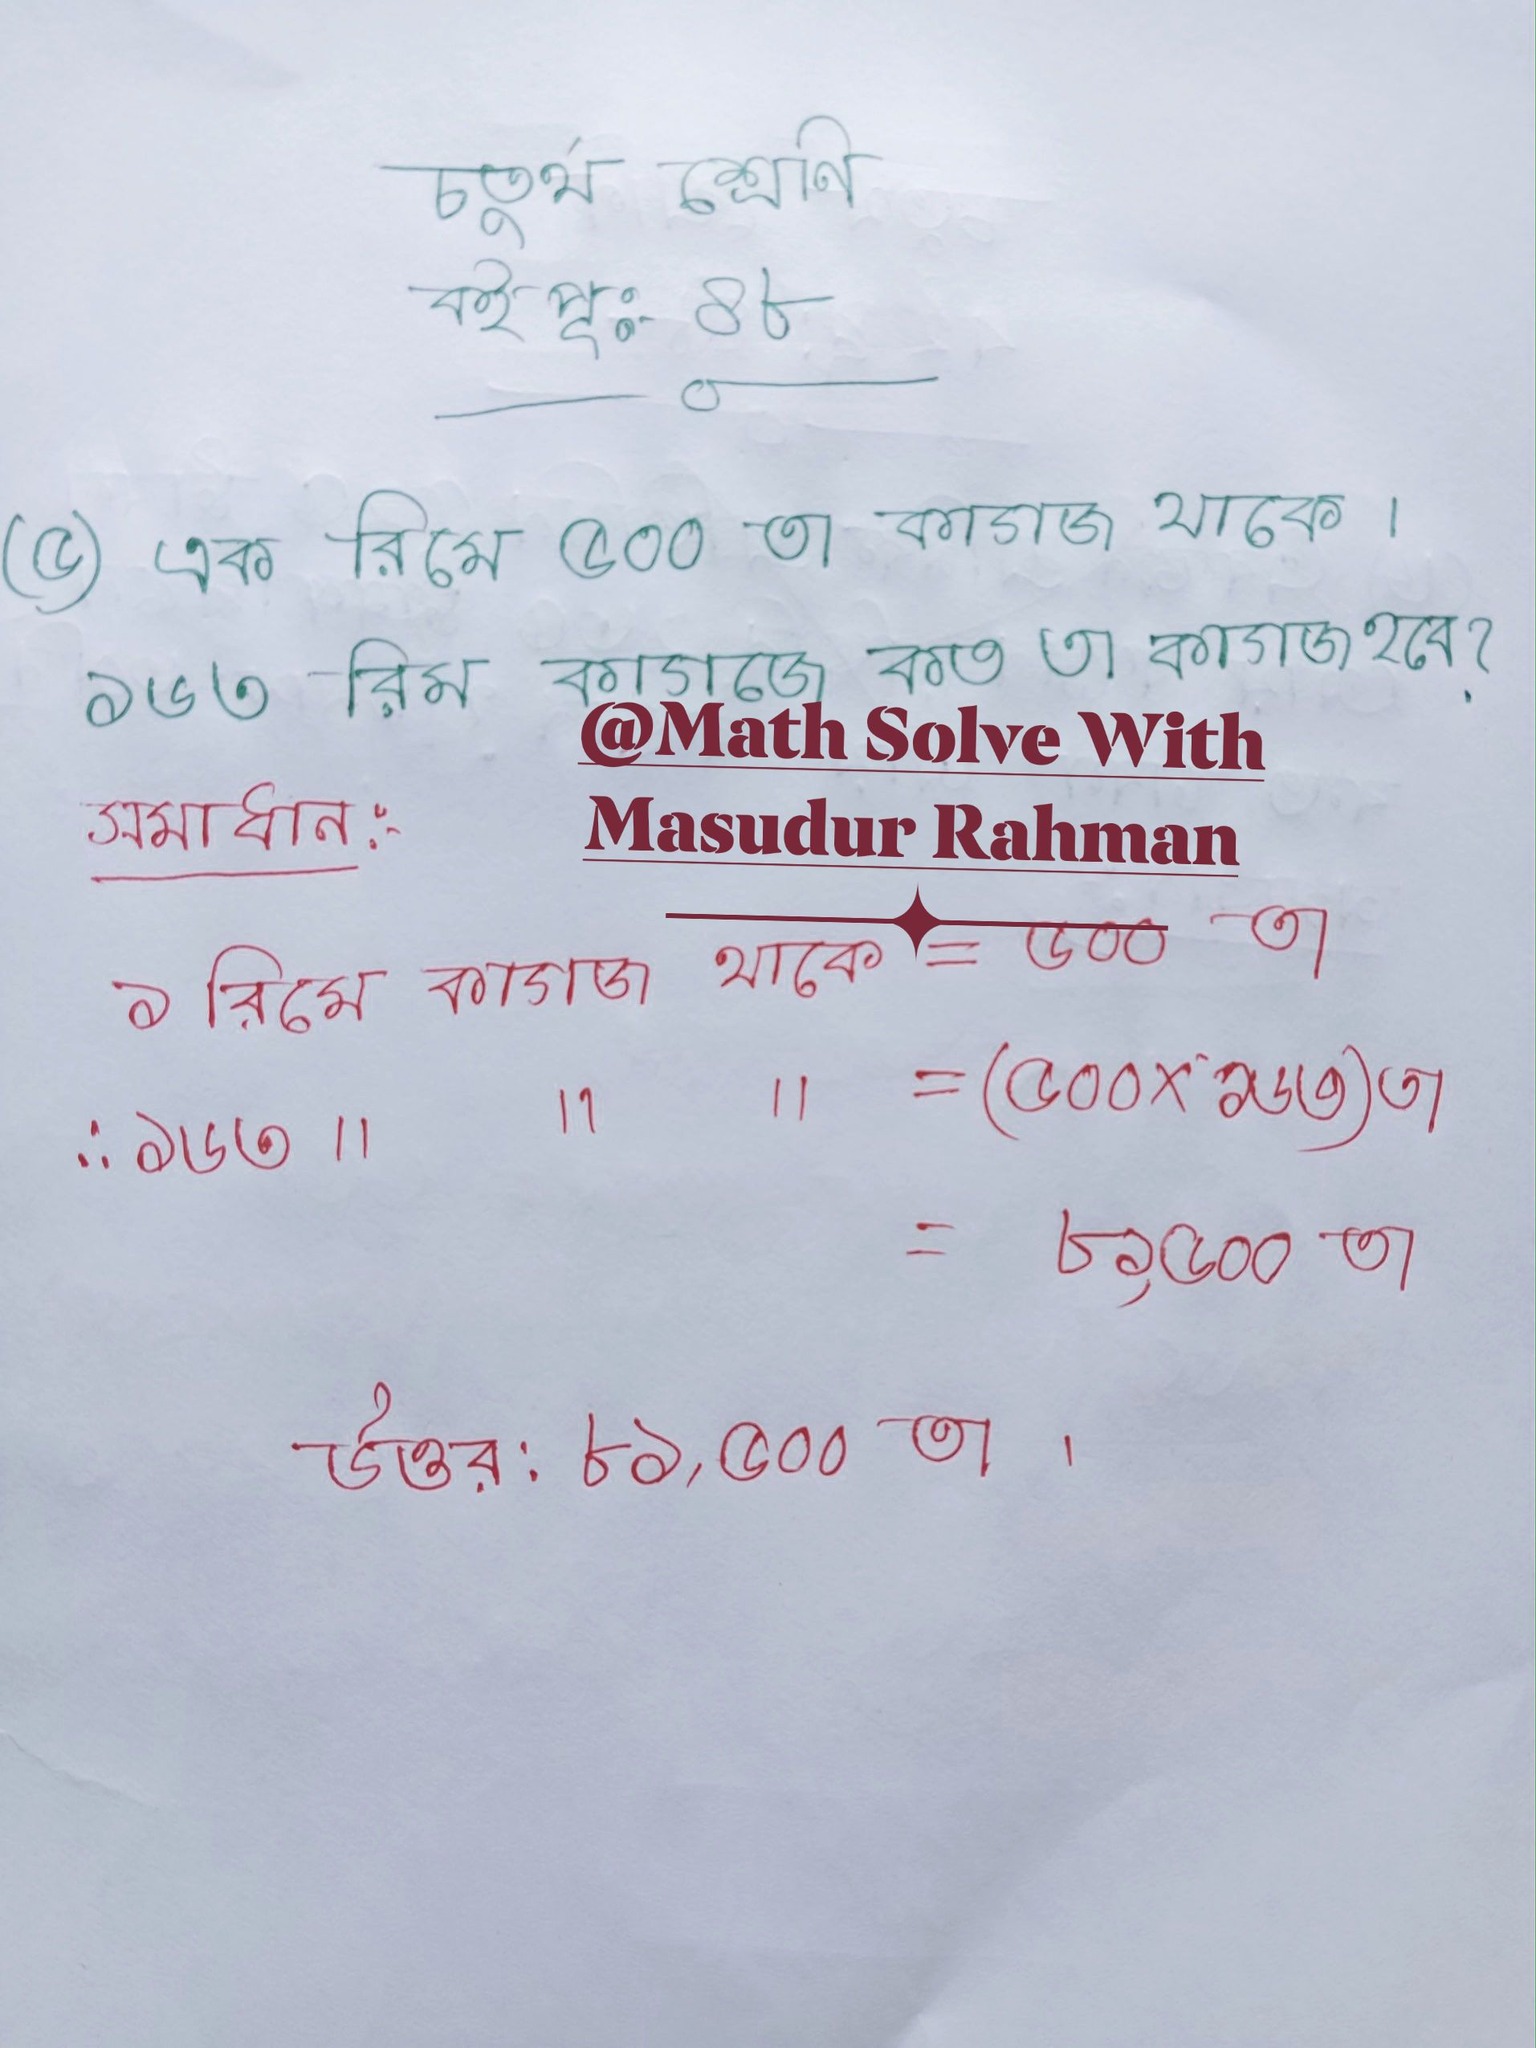 চতুর্থ শ্রেণি
বই পৃ:- ৪৮
(৫) এক রিমে ৫০০ তা কাগজ থাকে ।
১৬৩ রিম কাগজে কত তা কাগজ হবে?
@Math Solve With
Masudur Rahman
সমাধান:-
১ রিমে কাগজ থাকে = ৫০০ তা
∴ ১৬৩ " " " = (৫০০ × ১৬৩) তা
= ৮১,৫০০ তা
উত্তর: ৮১,৫০০ তা ।